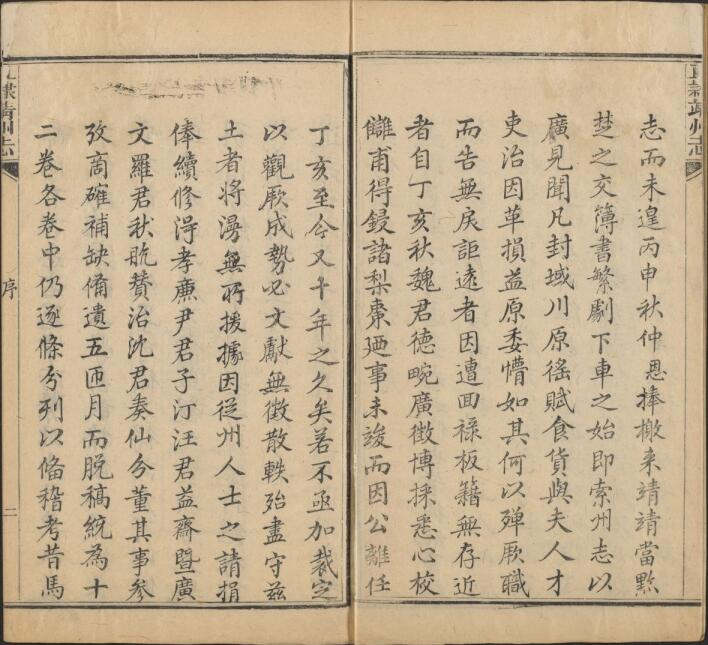 直隸靖州志
志而未遑丙申秋仲恩捧檄来靖靖當黔
楚之交簿書繁劇下車之始即索州志以
廣見聞凡封域川原徭賦食貨與夫人才
吏治因革損益原委懵如其何以殚厥職
而告無戾詎遠者因遭回祿板籍無存近
者自丁亥秋魏君德畹廣徴博採悉心校
讎甫得鋟諸梨棗廼事未竣而因公離任
丁亥至今又十年之久矣若不亟加裁定
以觀厥成勢必文獻無徴散軼殆盡守兹
土者将漫無所援據因従州人士之請捐
俸續修淂孝亷尹君子汀汪君益齋暨廣
文羅君秋舫賛治沈君奏仙分董其事參
攷商確補缺俻遺五匝月而脱稿統為十
二卷各卷中仍逐條分列以俻稽考昔馬
直隸靖州志
序
二